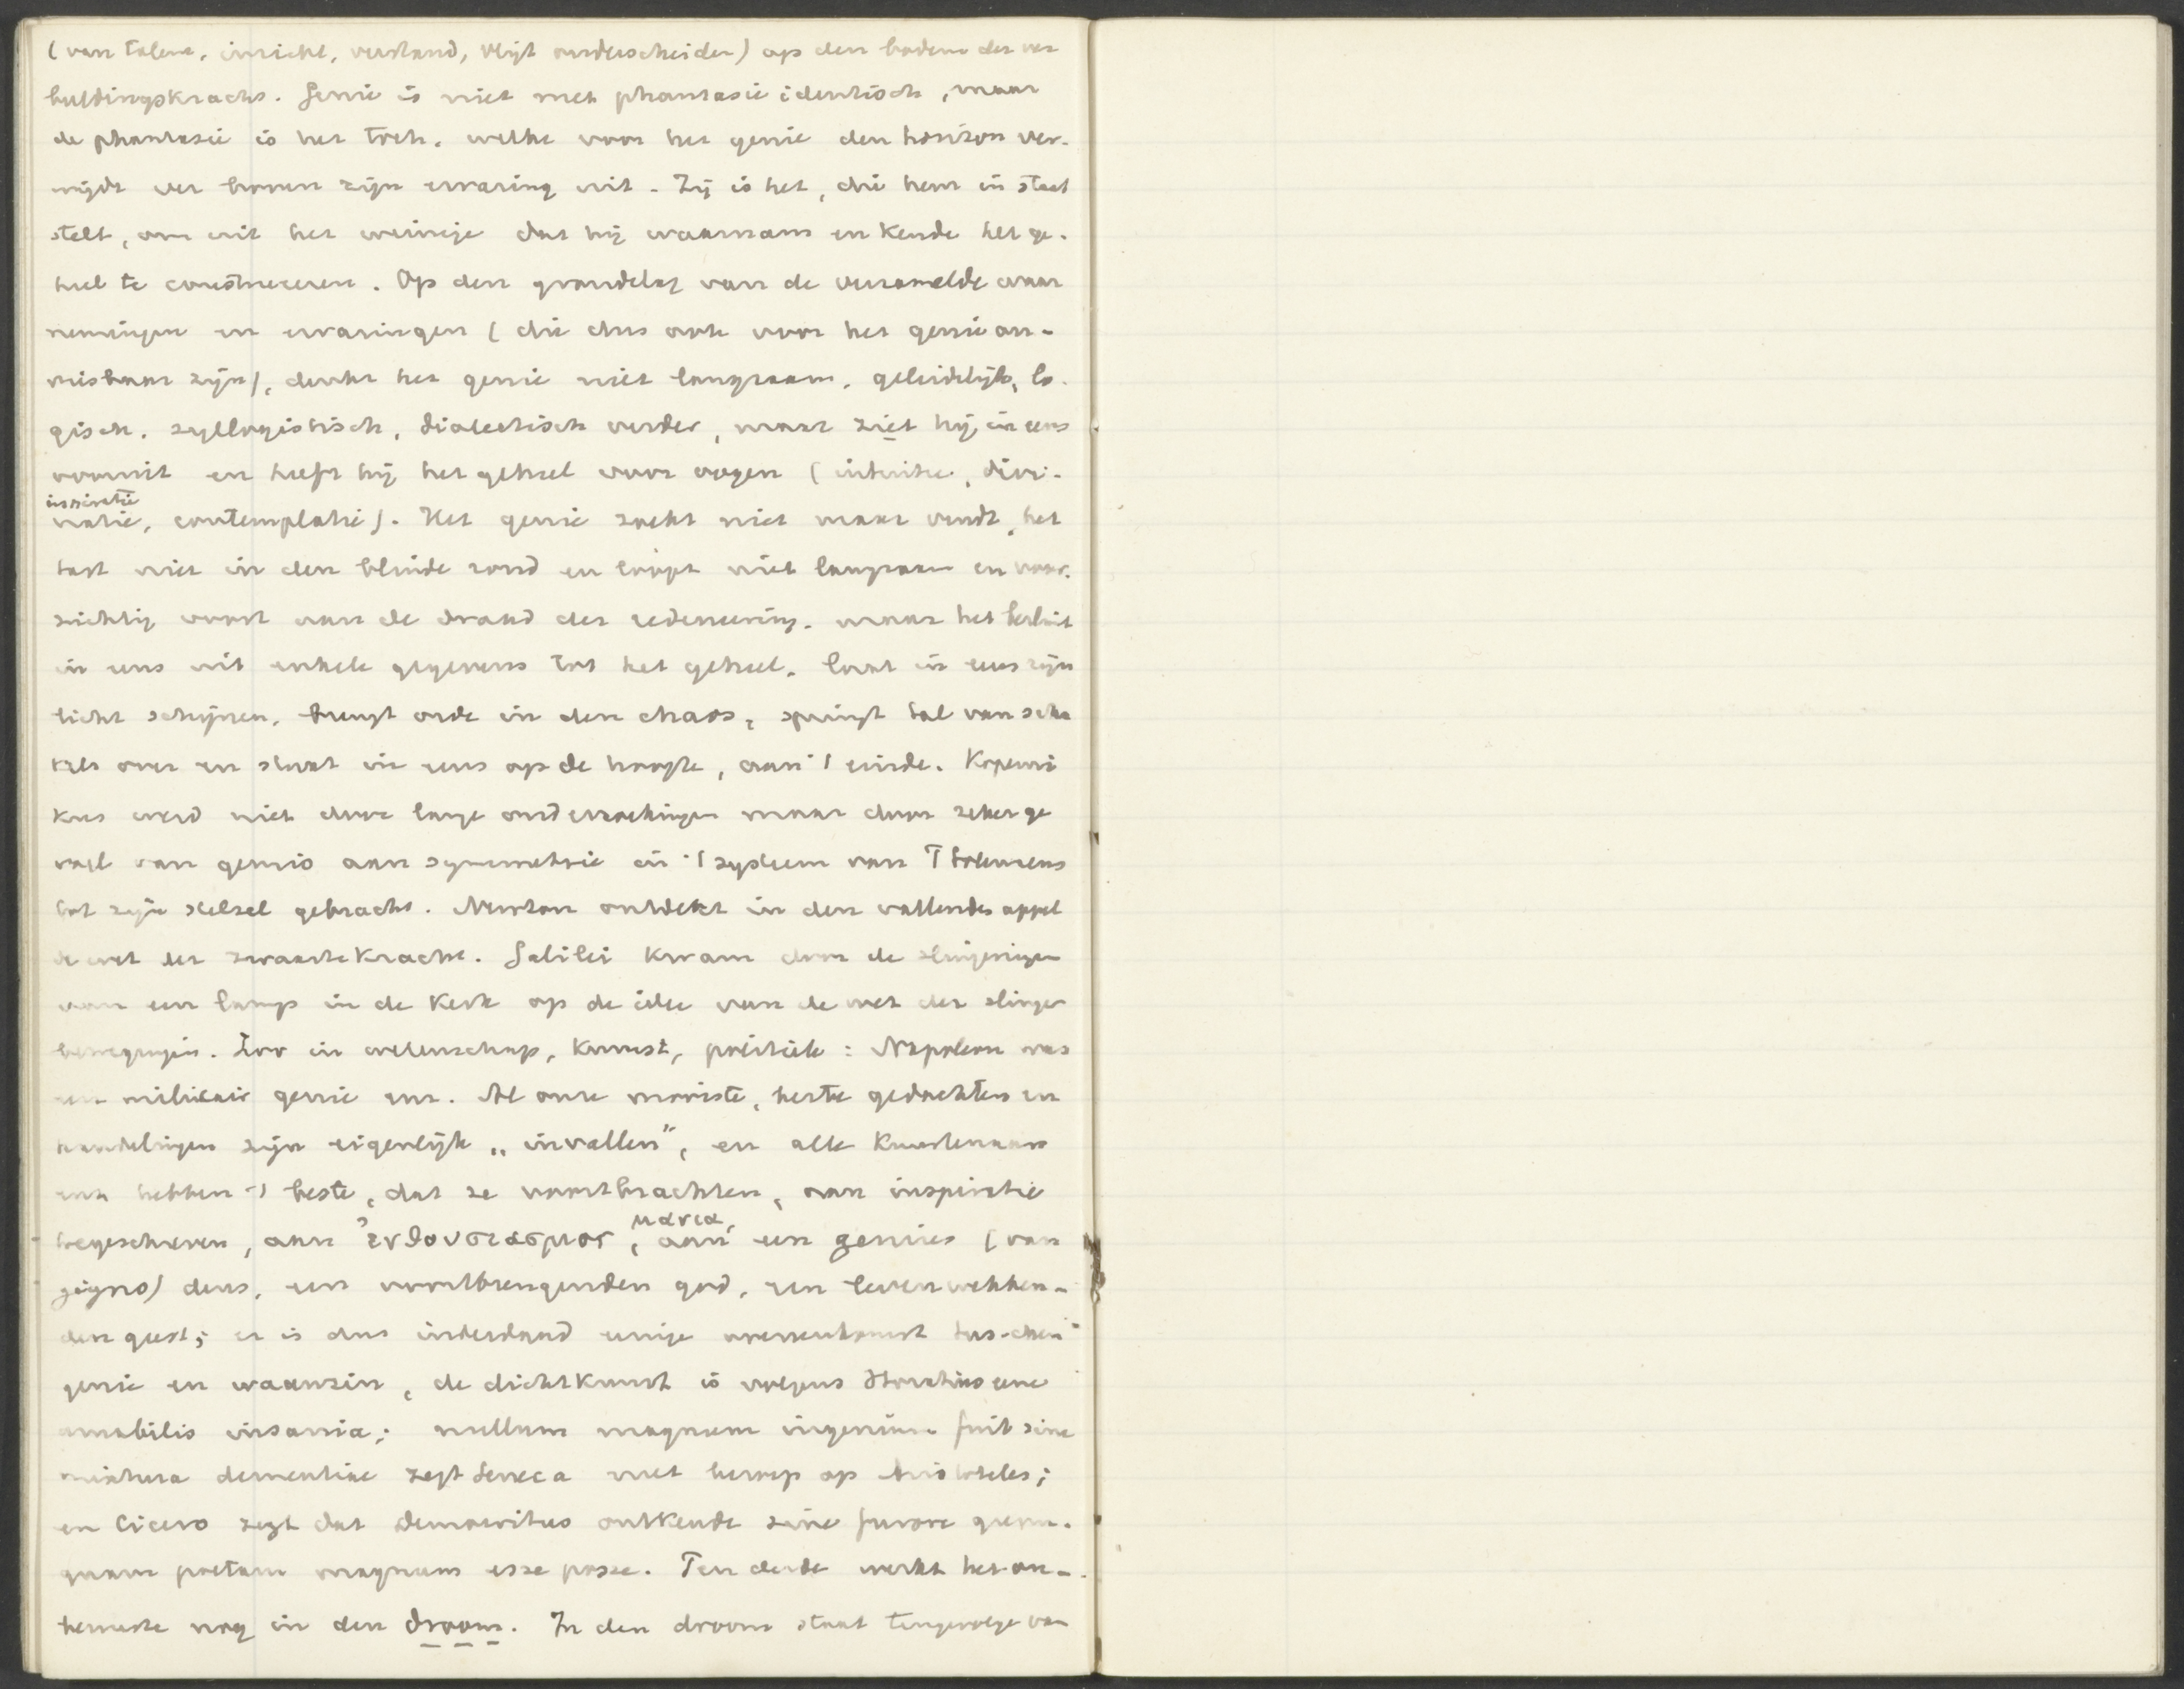 (van talent, inzicht, verstand, vlijt onderscheiden) op den bodem der ver
buldingskracht. Genie is niet met phantasie identisch, maar
de phantasie is het toch, welke voor het genie den horizon ver-
wijdt ver boven zijn ervaring uit. Zij is het, die hem in staat
stelt, om uit het weinige dat hij waarnam en kende het ge-
heel te construeeren. Op den grondslag van de verzamelde waar
nemingen en ervaringen (die dus ook voor het genie on-
misbaar zijn), denkt het genie niet langzaam, geleidelijk, lo-
gisch, syllogistisch, dialectisch verder, maar ziet hij in eens
vooruit en heeft hij het geheel voor oogen (intuitie, divi-
inspiratie
natie, contemplatie). Het genie zoekt niet maar vindt, het
tast niet in den blinde rond en loopt niet langzaam en voor-
zichtig voort aan de draad der redeneering, maar het besluit
in eens uit enkele gegevens tot het geheel, laat in eens zijn
licht schijnen, brengt orde in den chaos, springt tal van scha
kels over en staat in eens op de hoogte, aan 't einde. Koperni
kus werd niet door lange onderzoekingen maar door zeker ge
voel van gemis aan symmetrie in 't systeem van Ptolemeus
tot zijn stelsel gebracht. Newton ontdekt in den vallenden appel
de wet der zwaartekracht. Galilei kwam door de slingeringen
van een lamp in de kerk op de idee van de wet der slinger
bewegingen. Zoo in wetenschap, kunst, politiek: Napoleon was
een militair genie enz. Al onze mooiste, beste gedachten en
handelingen zijn eigenlijk „invallen", en alle kunstenaars
enz hebben 't beste, dat ze voortbrachten, aan inspiratie
toegeschreven, aan ἐνθουσιασμος, μανια, aan een genius (van
gigno) deus, een voortbrengenden god, een levenwekken-
den geest; er is dus inderdaad eenige overeenkomst tusschen
genie en waanzin, de dichtkunst is volgens Horatius eene
amabilis insania; nullum magnum ingenium fuit sine
mixtura dementiae zegt Seneca met beroep op Aristoteles;
en Cicero zegt dat Democritus ontkende sine furore quem-
quam poetam magnum esse posse. Ten derde werkt het on-
bewuste nog in den droom. In den droom staat tengevolge van